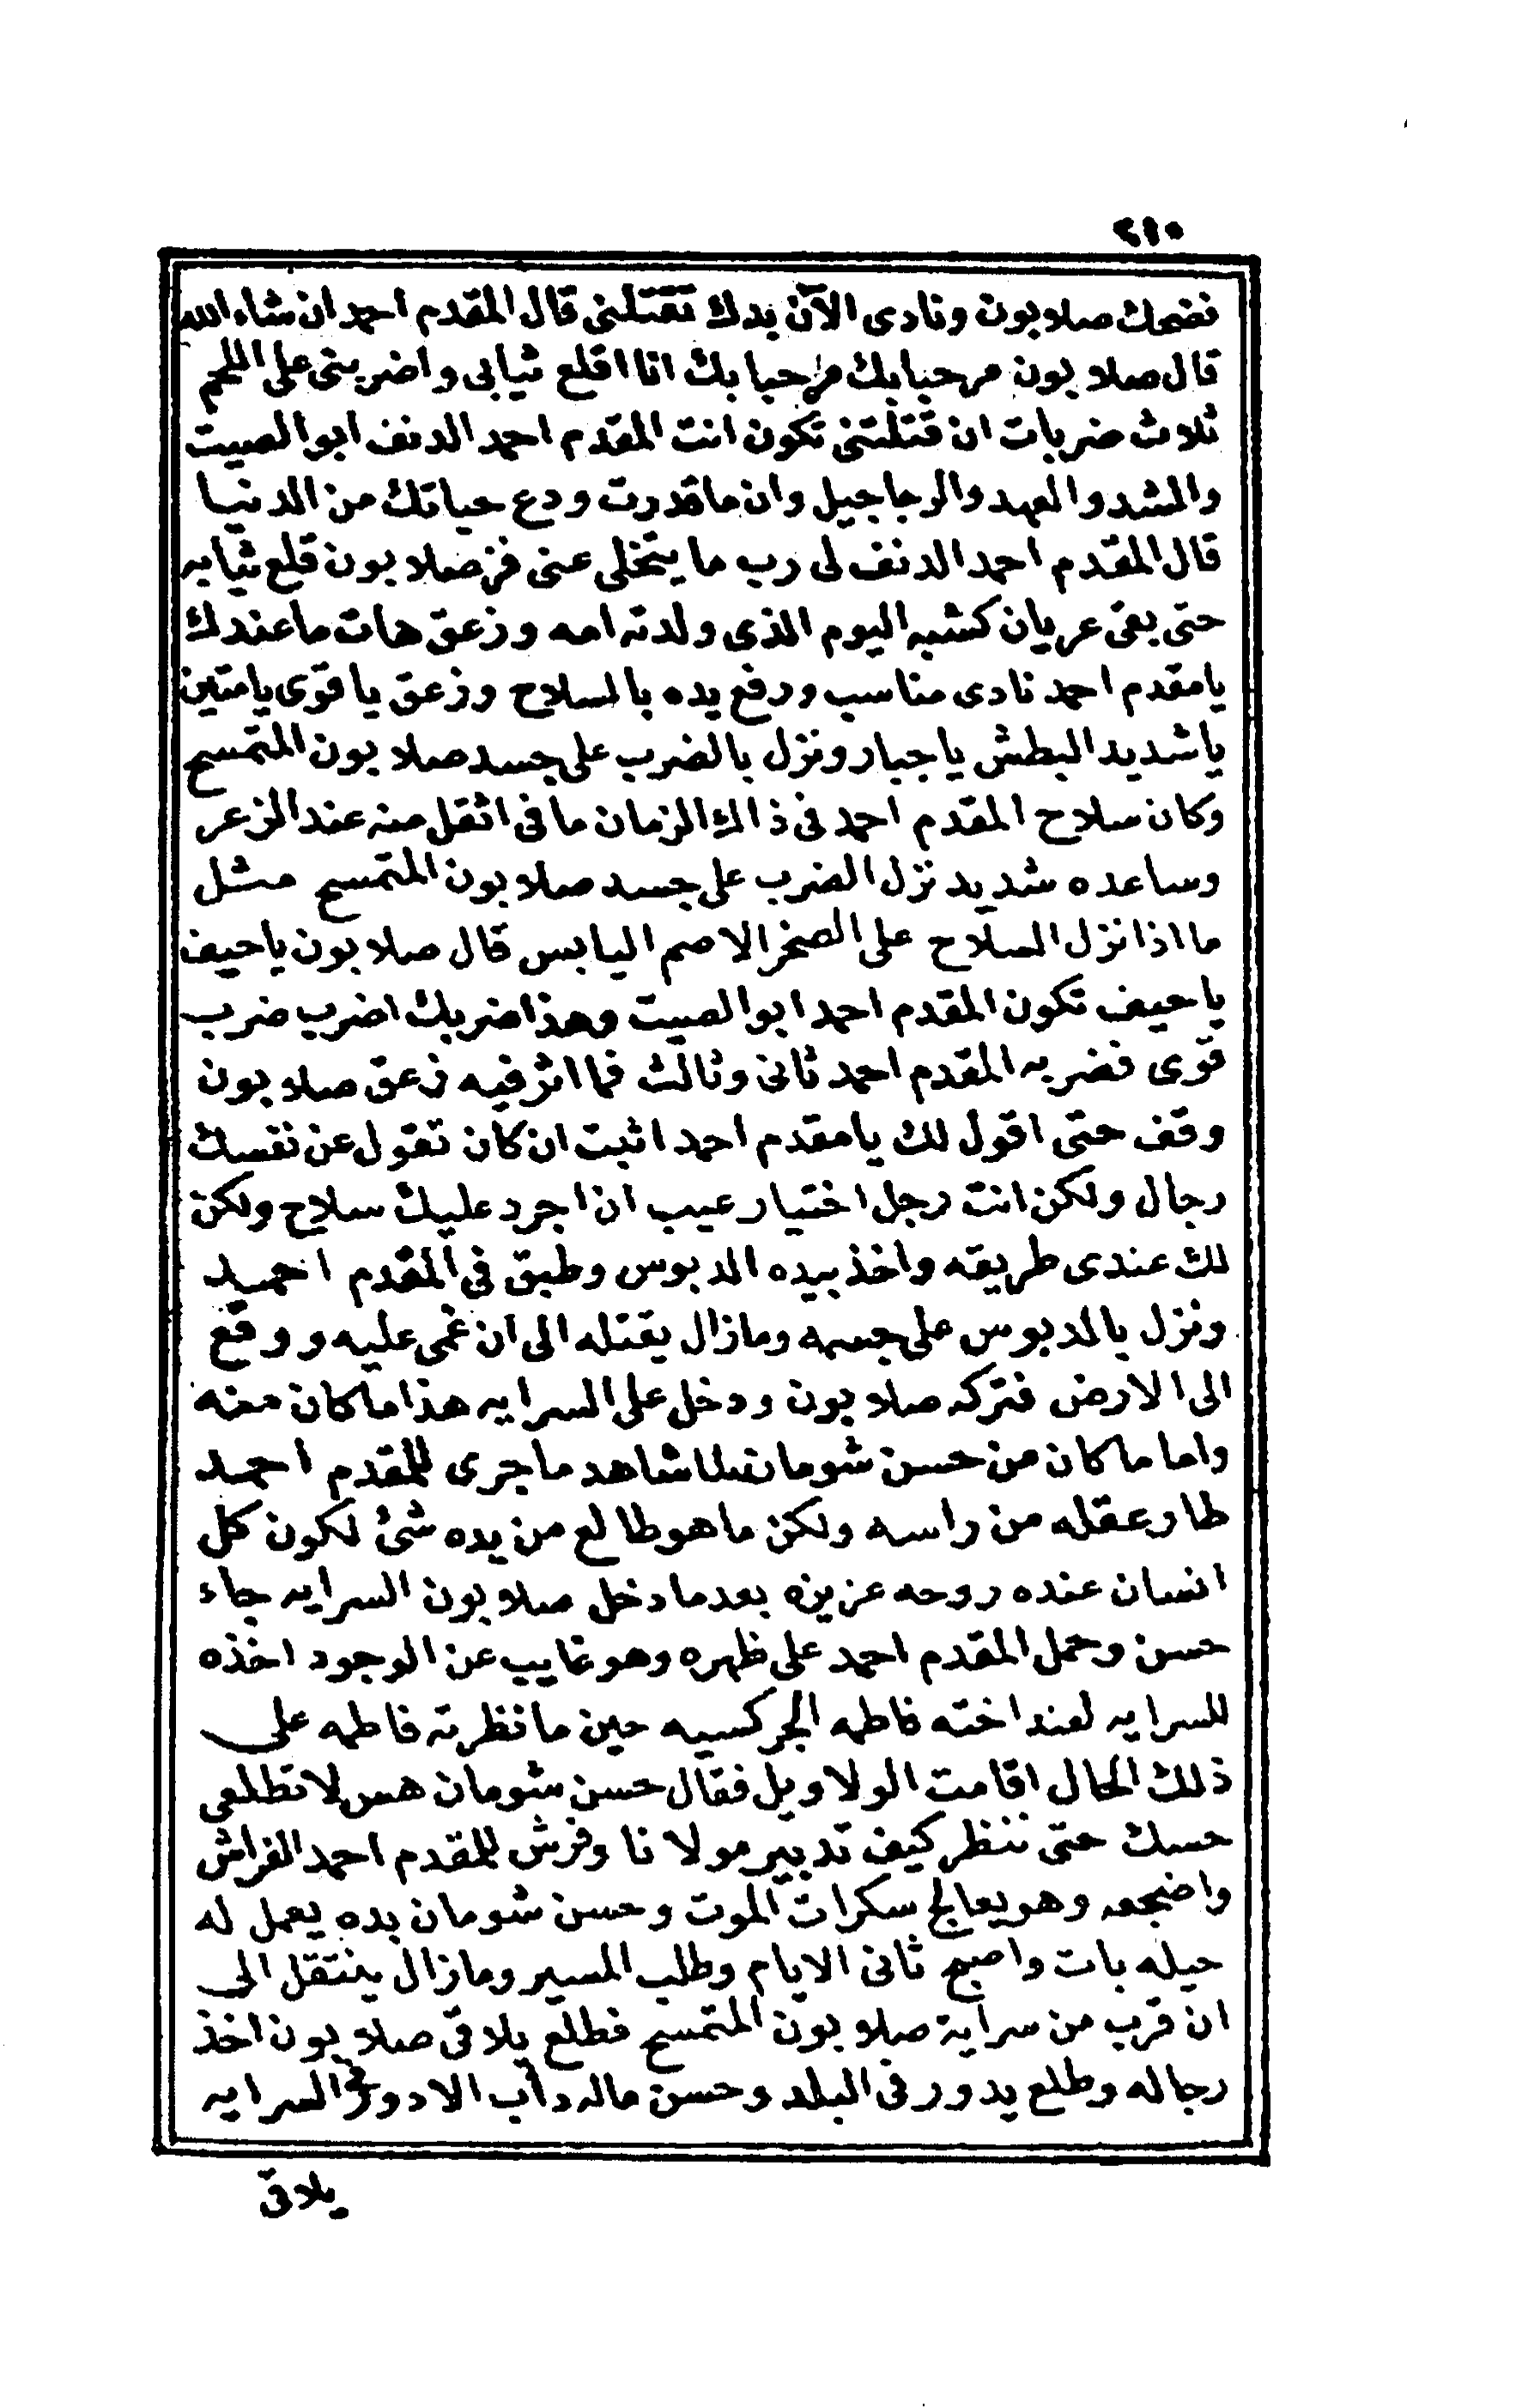 ٢١٠
فضحك صلابون ونادى الآن بدك تقتلنى قال المقدم احمد ان شاء الله
قال صلابون مرحبا بك مرحبا بك انا اقلع ثيابى واضربنى على اللحم
ثلاث ضربات ان قتلتنى تكون انت المقدم احمد الدنف ابو الصيت
والمشد والعهد والرجاجيل وان ما قدرت ودع حياتك من الدنيا
قال المقدم احمد الدنف لى رب ما يتخلى عنى فز صلابون قلع ثيابه
حتى بقى عريان كشبه اليوم الذى ولدته امه وزعق هات ما عندك
يا مقدم احمد نادى مناسب ورفع يده بالسلاح وزعق يا قوى يا متين
يا شديد البطش يا جبار ونزل بالضرب على جسد صلابون المتمسح
وكان سلاح المقدم احمد فى ذاك الزمان ما فى اثقل منه عند الزعر
وساعده شديد نزل الضرب على جسد صلابون المتمسح مثل
ما اذا نزل السلاح على الصخر الاصم اليابس قال صلابون يا حيف
يا حيف تكون المقدم احمد ابو الصيت وهذا ضربك اضرب ضرب
قوى فضربه المقدم احمد ثانى وثالث فما اثر فيه زعق صلابون
وقف حتى اقول لك يا مقدم احمد اثبت ان كان تقول عن نفسك
رجال ولكن انت رجل اختيار عيب ان اجرد عليك سلاح ولكن
لك عندى طريقه واخذ بيده الدبوس وطبق فى المقدم احمد
ونزل بالدبوس على جسمه ومازال يقتله الى ان غمى عليه ووقع
الى الارض فتركه صلابون ودخل على السرايه هذا ما كان منه
واما ما كان من حسن شومان لما شاهد ما جرى للمقدم احمد
طار عقله من راسه ولكن ما هو طالع من يده شئ لكون كل
انسان عنده روحه عزيزه بعدما دخل صلابون السرايه جاء
حسن وحمل المقدم احمد على ظهره وهو غايب عن الوجود اخذه
للسرايه لعند اخته فاطمه الجركسيه حين ما نظرته فاطمه على
ذلك الحال اقامت الولاويل فقال حسن شومان هس لا تطلعى
حسك حتى ننظر كيف تدبير مولانا وفرش للمقدم احمد الفراش
واضجعه وهو يعالج سكرات الموت وحسن شومان بده يعمل له
حيله بات واصبح ثانى الايام وطلب المسير ومازال ينتقل الى
ان قرب من سراية صلابون المتمسح فطلع يلاقى صلابون اخذ
رجاله وطلع يدور فى البلد وحسن ماله دأب الا دوغرى السرايه
يلاقى